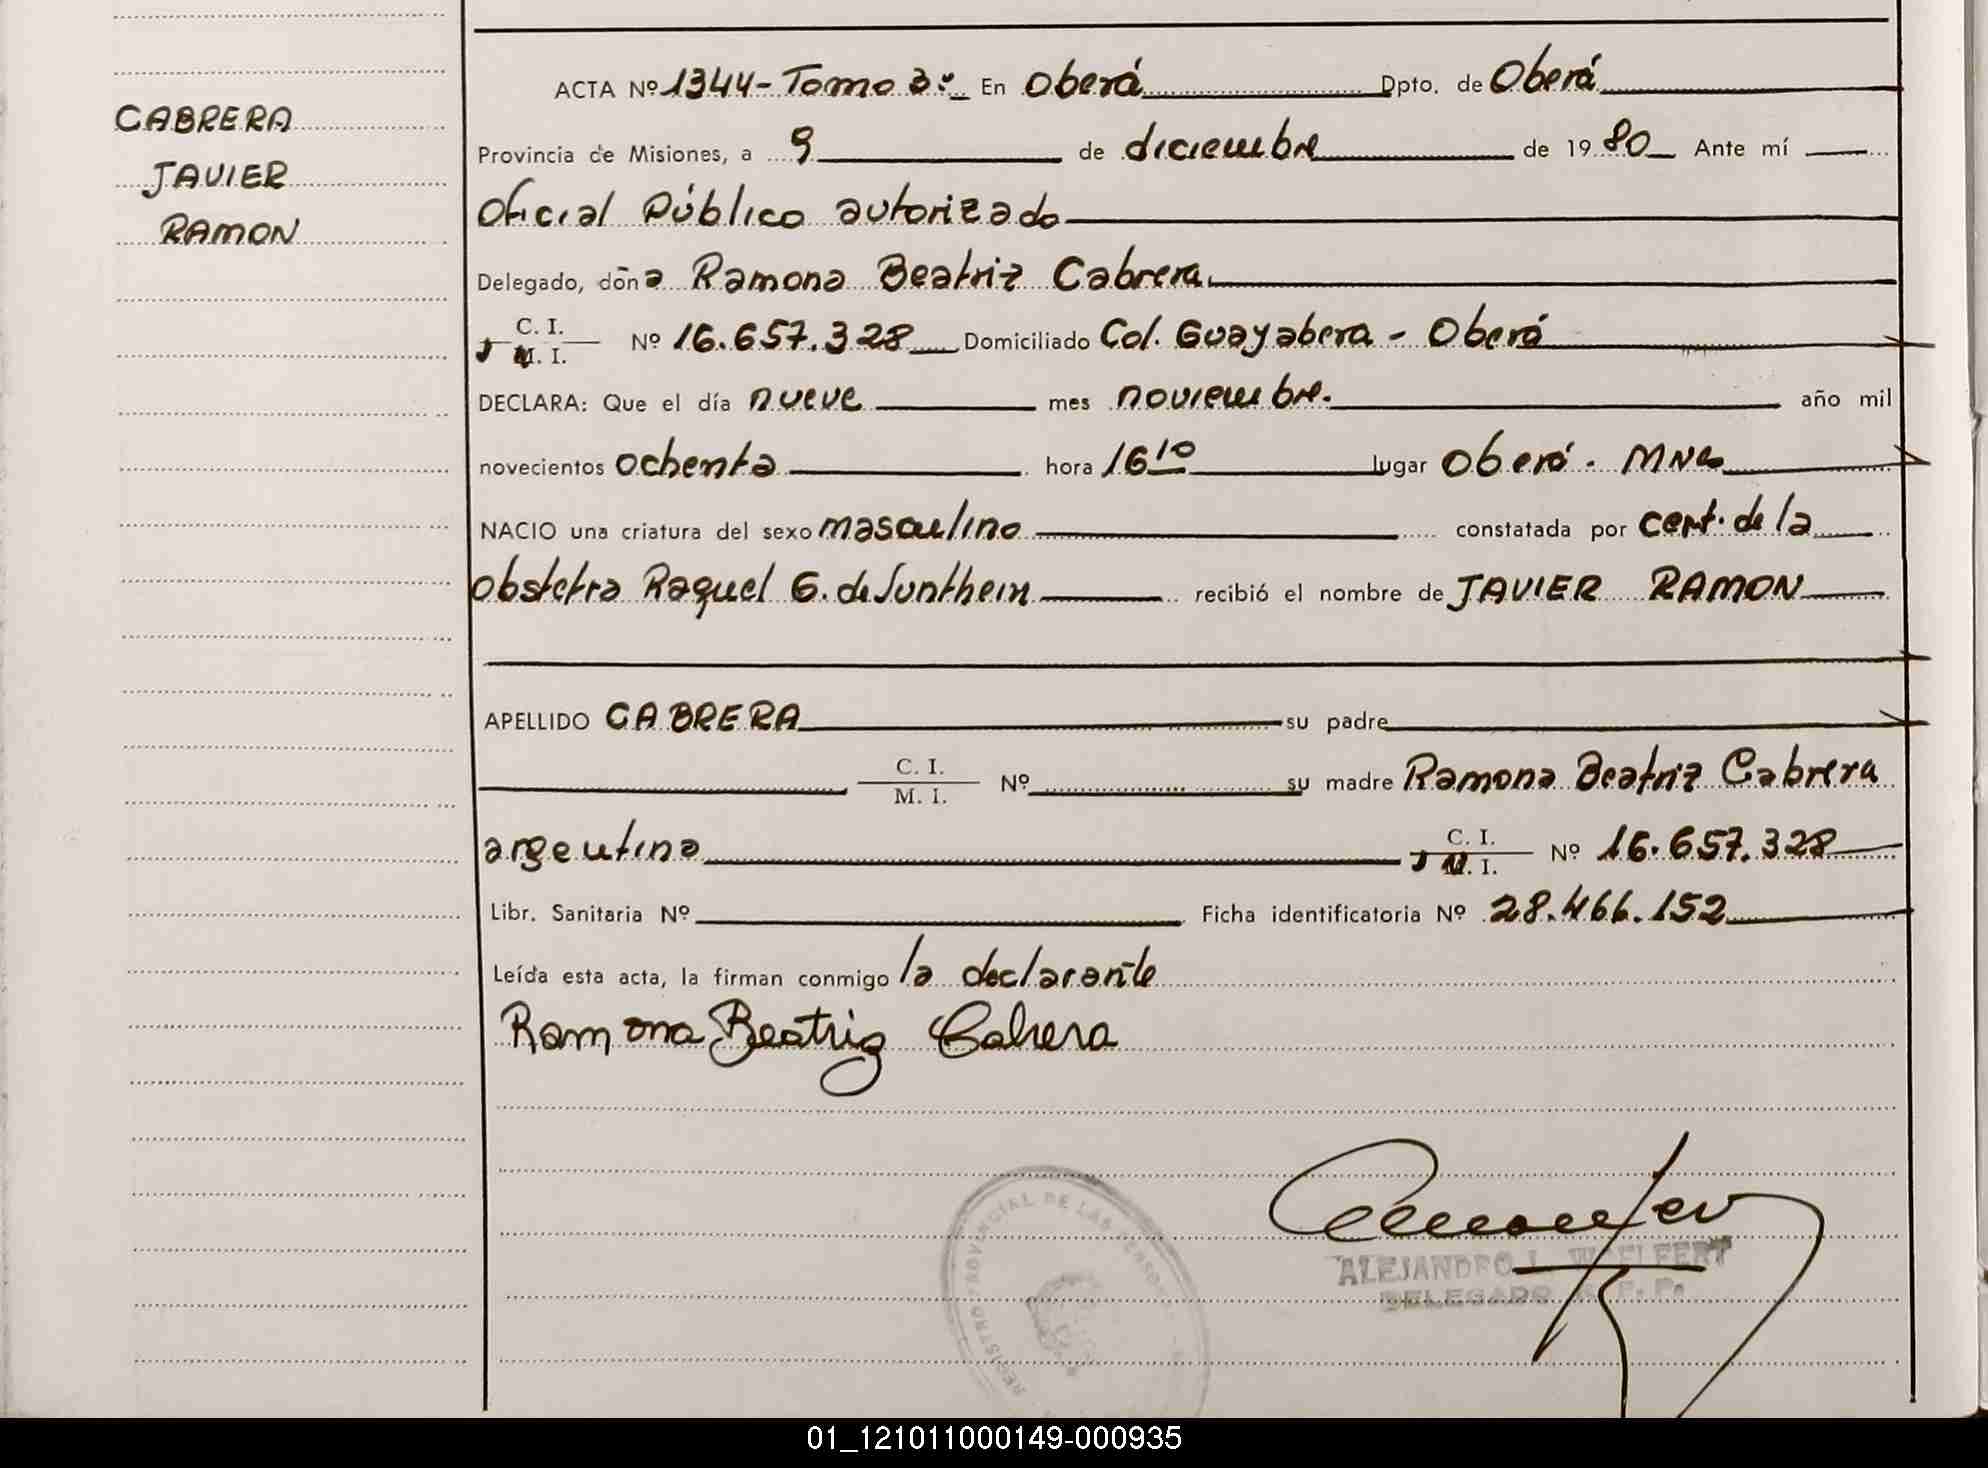 CABRERA
JAVIER
RAMON
ACTA Nº 1344- Tomo 3º En Oberá Dpto. de Oberá
Provincia de Misiones, a 9 de diciembre de 1980 Ante mí
Oficial Público autorizado
Delegado, doña Ramona Beatriz Cabrera
C. I.
M. I. Nº 16.657.328 Domiciliado Col. Guayabera - Oberá
DECLARA: Que el día nueve mes noviembre. año mil
novecientos ochenta hora 16 10 lugar Oberá. Mnes
NACIO una criatura del sexo masculino constatada por cert. de la
Obstetra Raquel G. de recibió el nombre de JAVIER RAMON
APELLIDO CABRERA su padre
C. I.
M. I. Nº su madre Ramona Beatriz Cabrera
argentina C. I.
M. I. Nº 16.657.328
Libr. Sanitaria Nº Ficha identificatoria Nº 28.466.152
Leída esta acta, la firman conmigo la declarante
Ramona Beatriz Cabrera
REGISTRO PROVINCIAL DE LAS PERSONAS
ALEJANDRO L. WOELFERT
DELEGADO R. P. P.
01_121011000149-000935